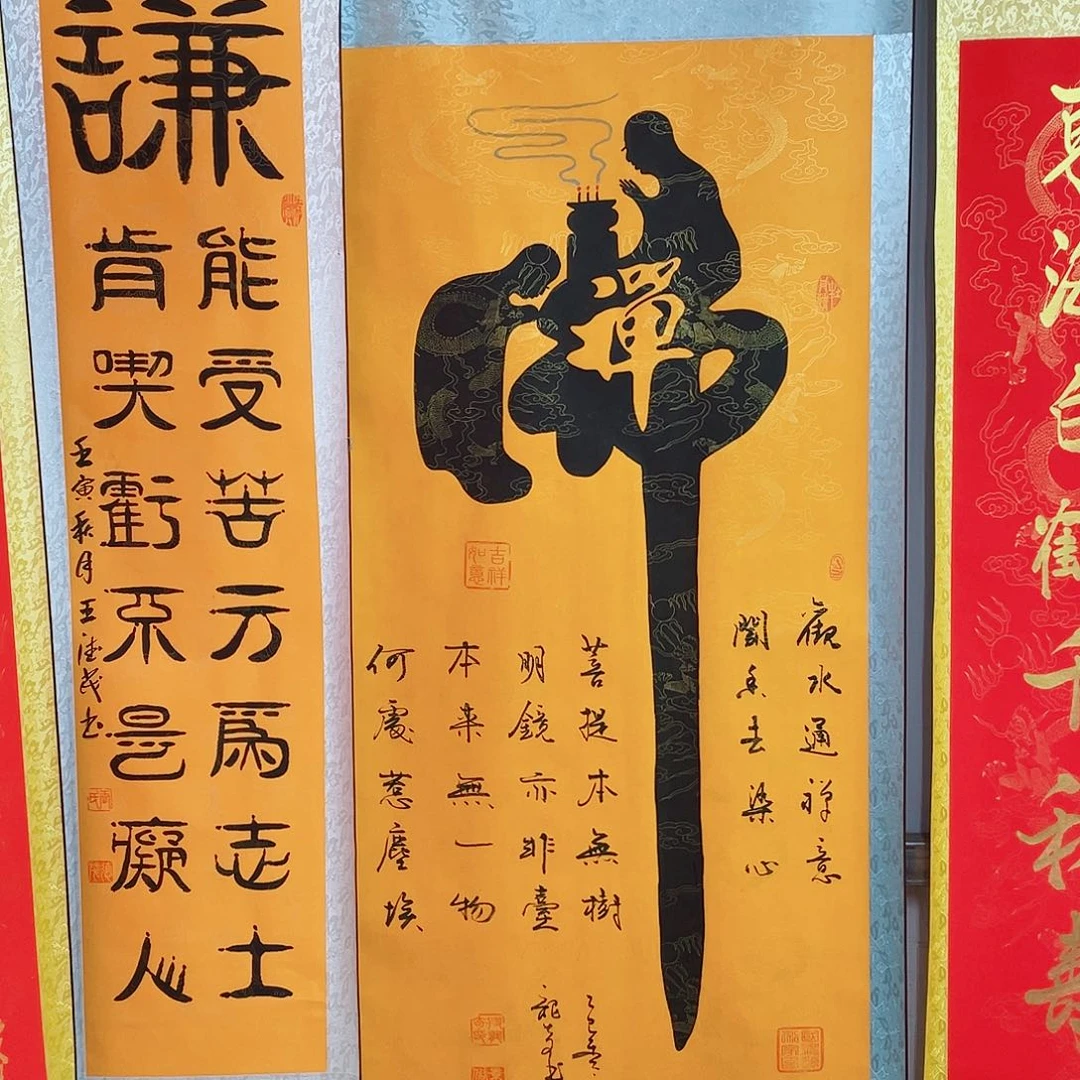 東海白鶴千秋壽
禪
觀水通禅意
聞香去染心
菩提本無樹
明鏡亦非臺
本来無一物
何處惹塵埃
吉祥如意
謙
能受苦方爲志士
肯喫虧不是癡心
壬寅秋月